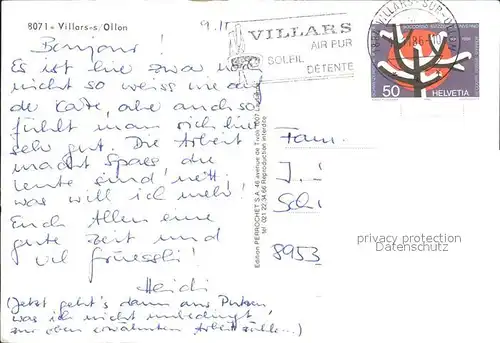 8071 - Villars-s/Ollon
9.11
Bonjour!
Es ist hier zwar noch
nicht so weiss wie auf
der Karte, aber auch so
fühlt man sich hier
sehr gut. Die Arbeit
macht Spass, die
Leute sind nett,
was will ich mehr.
Euch Allen eine
gute Zeit und
viel Grüessli!
Heidi
(Jetzt geht's dann ans Putzen,
was ich nicht unbedingt
zur oben erwähnten Arbeit zähle...)
Edition PERROCHET S.A. 46 avenue de 1007
tel. 021 22.34.66 Reproduction interdite
VILLARS
AIR PUR
SOLEIL
DÉTENTE
VILLARS-SUR-OLLON
50 HELVETIA
Fam.
J.
Sch
8953
privacy protection
Datenschutz